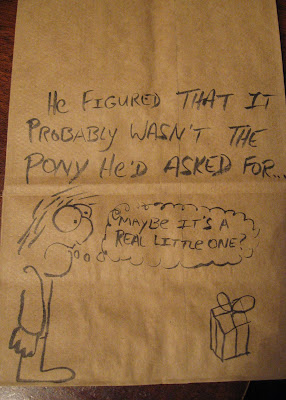 He FIGURED THAT IT
PROBABLY WASN'T THE
PONY He'D ASKED FOR...
MAYBE IT'S A
REAL LITTLE ONE?